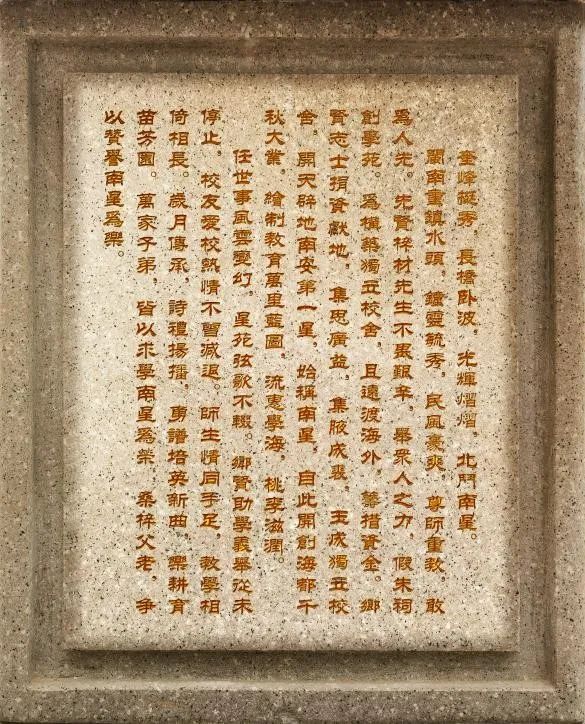 奎峰挺秀，長橋卧波，光輝熠熠，北鬥南星。
閩南重鎮水頭，鐘靈毓秀，民風豪爽，尊師重教，敢
爲人先。先賢梓材先生不畏艱辛，舉衆人之力，假朱祠
創學苑。爲構築獨立校舍，且遠渡海外，籌措資金。鄉
賢志士捐資獻地，集思廣益，集腋成裘，玉成獨立校
舍。開天辟地南安第一星，始稱南星，自此開創海都千
秋大業，繪制教育萬里藍圖，流惠學海，桃李滋潤。
任世事風雲變幻，星苑弦歌不輟。鄉賢助學義舉從未
停止，校友愛校熱情不曾减退。師生情同手足，教學相
倚相長。歲月傳承，詩禮揚播，勇譜培英新曲，樂耕育
苗芳園。萬家子弟，皆以求學南星爲榮，桑梓父老，争
以贊譽南星爲樂。